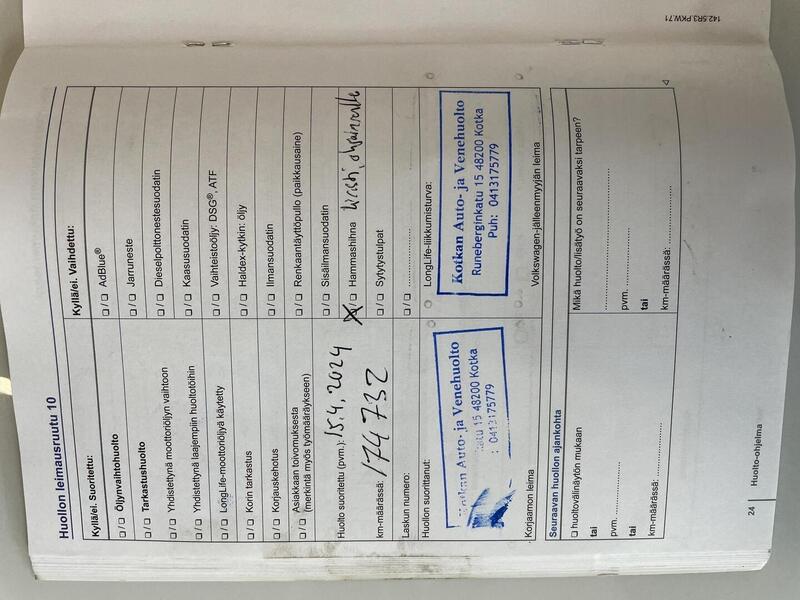 142.5R3.PKW.71
Huollon leimausruutu 10
Kyllä/ei. Suoritettu:
☐ / ☐ Öljynvaihtohuolto
☐ / ☐ Tarkastushuolto
☐ / ☐ Yhdistettynä moottoriöljyn vaihtoon
☐ / ☐ Yhdistettynä laajempiin huoltotöihin
☐ / ☐ LongLife-moottoriöljyä käytetty
☐ / ☐ Korin tarkastus
☐ / ☐ Korjauskehotus
☐ / ☐ Asiakkaan toivomuksesta
(merkintä myös työmääräykseen)
Huolto suoritettu (pvm.): 15.4.2024
km-määrässä: 174 732
Laskun numero:
Huollon suorittanut:
Kotkan Auto- ja Venehuolto
katu 15 48200 Kotka
: 0413175779
Korjaamon leima
Kyllä/ei. Vaihdettu:
☐ / ☐ AdBlue®
☐ / ☐ Jarruneste
☐ / ☐ Dieselpolttonestesuodatin
☐ / ☐ Kaasusuodatin
☐ / ☐ Vaihteistoöljy: DSG®, ATF
☐ / ☐ Haldex-kytkin: öljy
☐ / ☐ Ilmansuodatin
☐ / ☐ Renkaantäyttöpullo (paikkausaine)
☐ / ☐ Sisäilmansuodatin
☒ / ☐ Hammashihna kiristi, ohjainrulla
☐ / ☐ Sytytystulpat
☐ / ☐ ....................
LongLife-liikkumisturva:
Kotkan Auto- ja Venehuolto
Runeberginkatu 15 48200 Kotka
Puh: 0413175779
Volkswagen-jälleenmyyjän leima
Seuraavan huollon ajankohta
☐ huoltovälinäytön mukaan
tai
pvm. ....................
tai
km-määrässä: ....................
Mikä huolto/lisätyö on seuraavaksi tarpeen?
....................
pvm. ....................
tai
km-määrässä: ....................
24 | Huolto-ohjelma